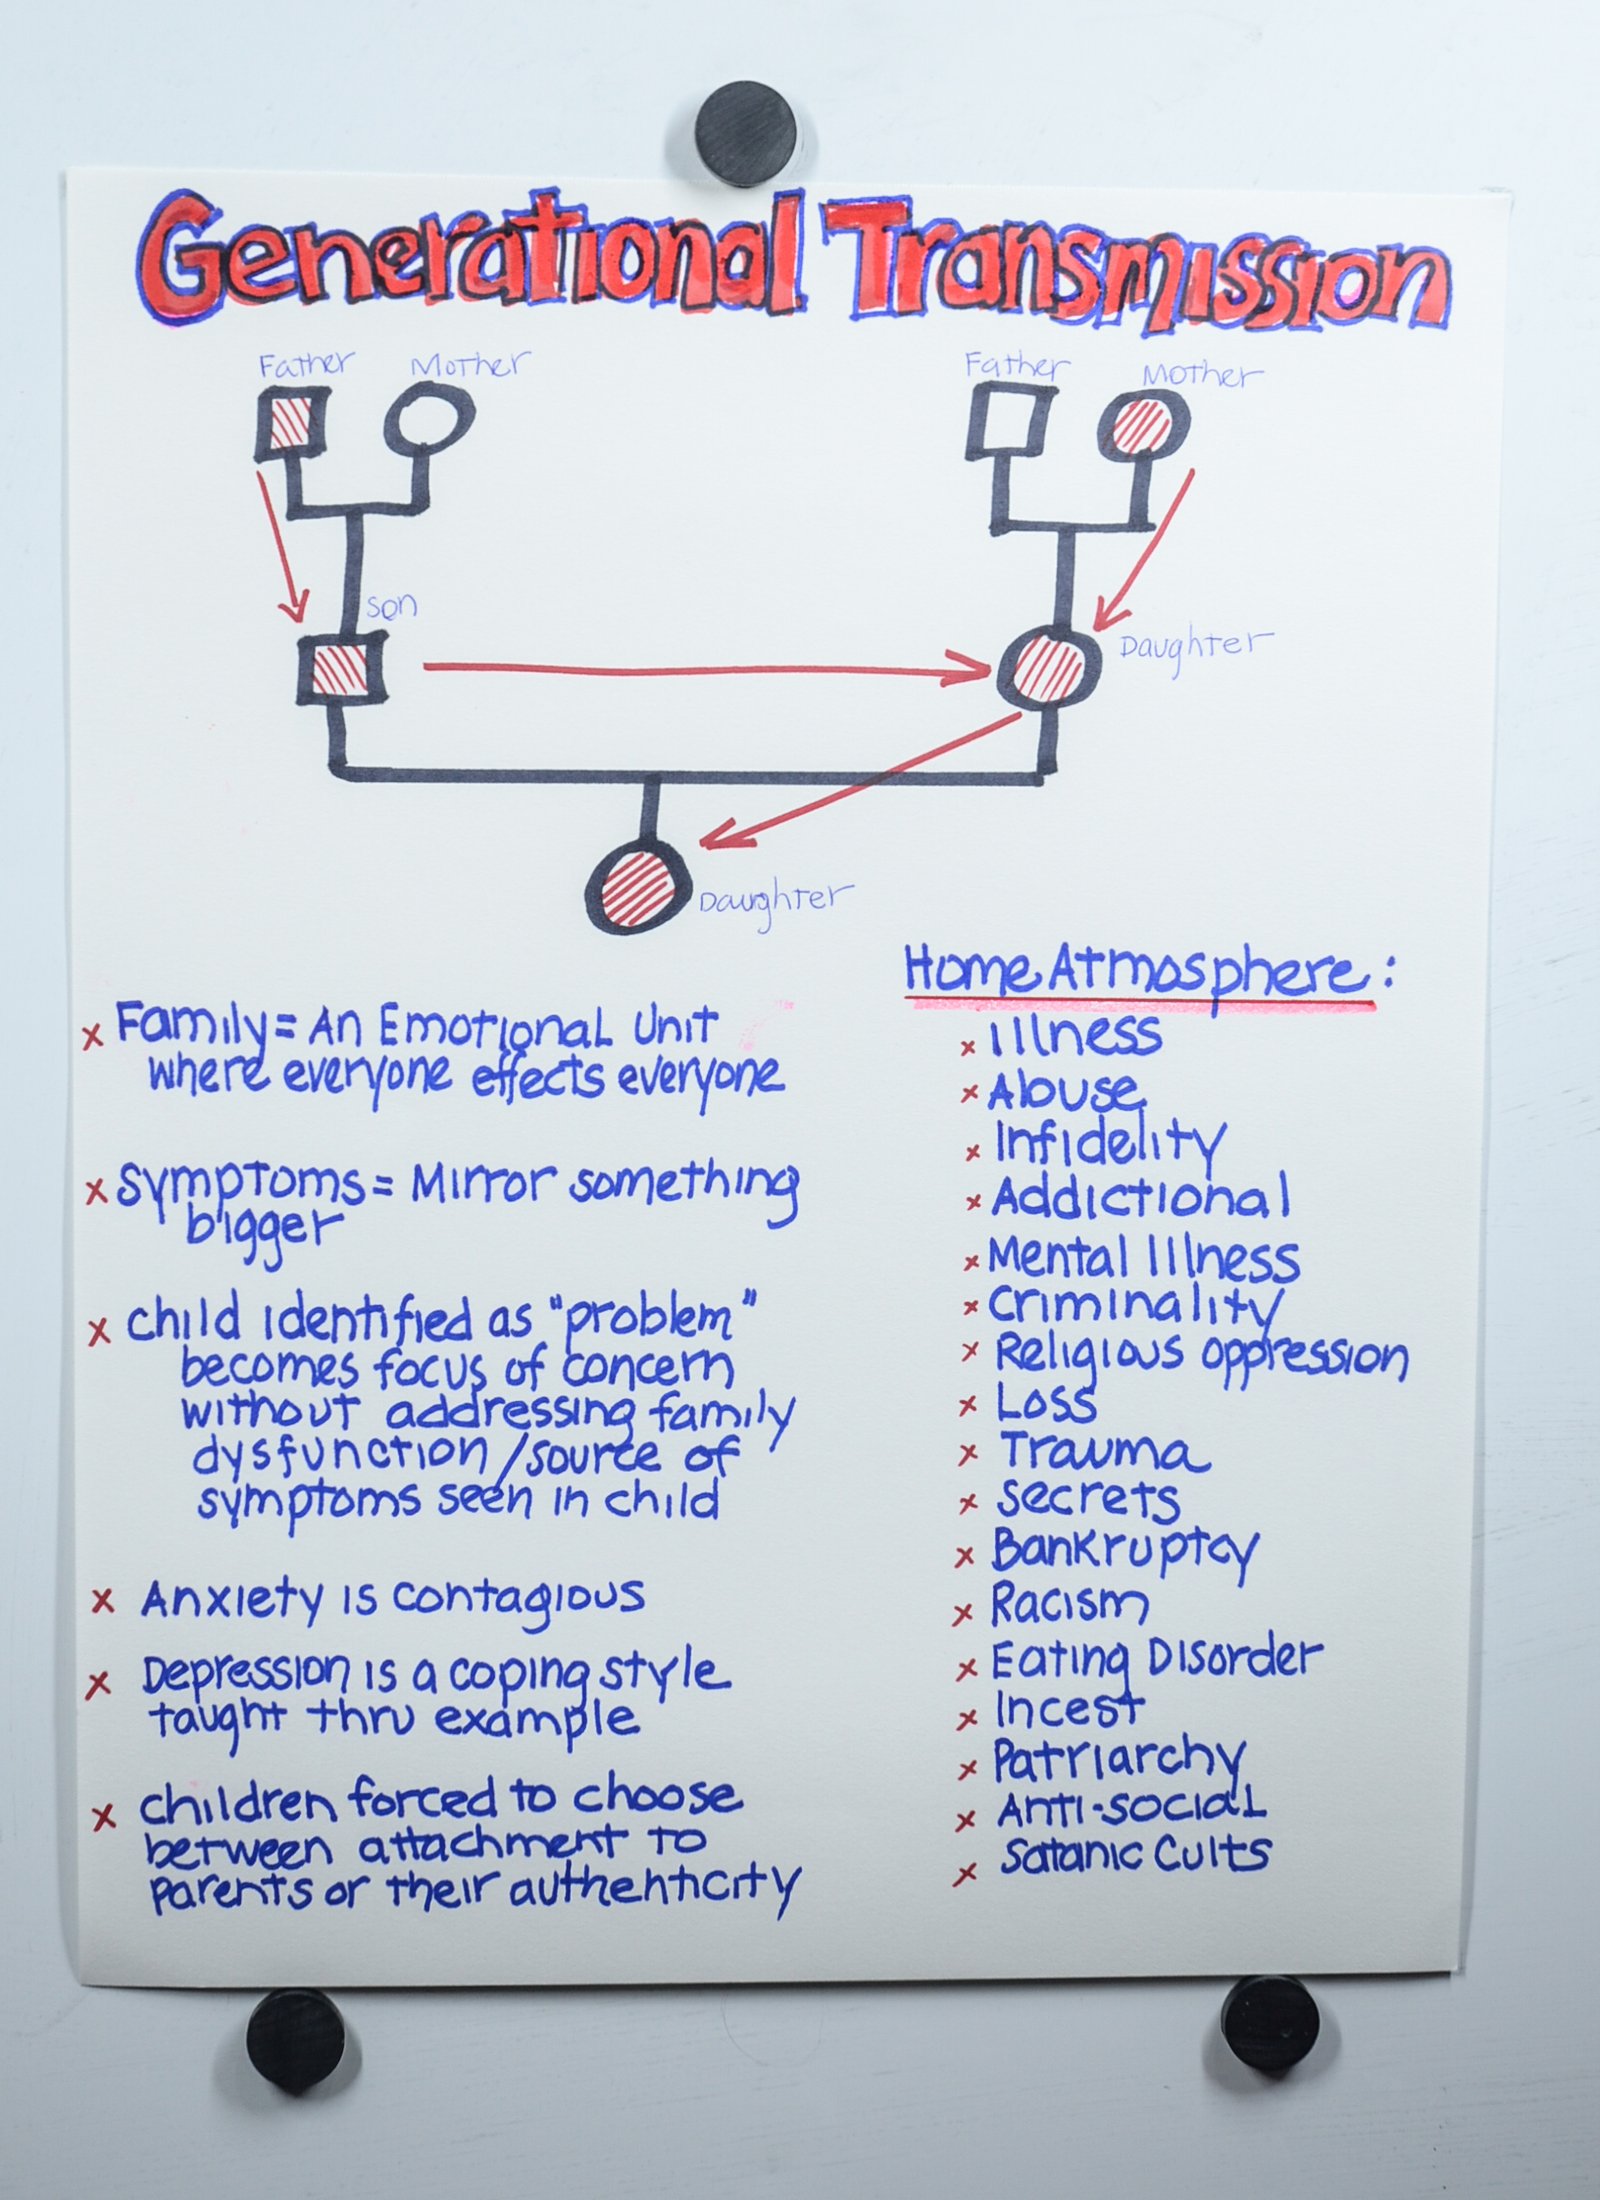 Generational Transmission
Father
Mother
Father
Mother
Son
Daughter
Daughter
× Family = An Emotional Unit
where everyone effects everyone
× Symptoms = Mirror something
bigger
× child identified as "problem"
becomes focus of concern
without addressing family
dysfunction/source of
symptoms seen in child
× Anxiety is contagious
× Depression is a coping style
taught thru example
× children forced to choose
between attachment to
parents or their authenticity
Home Atmosphere:
× Illness
× Abuse
× Infidelity
× Addictional
× Mental Illness
× Criminality
× Religious oppression
× Loss
× Trauma
× Secrets
× Bankruptcy
× Racism
× Eating Disorder
× Incest
× Patriarchy
× Anti-social
× Satanic Cults